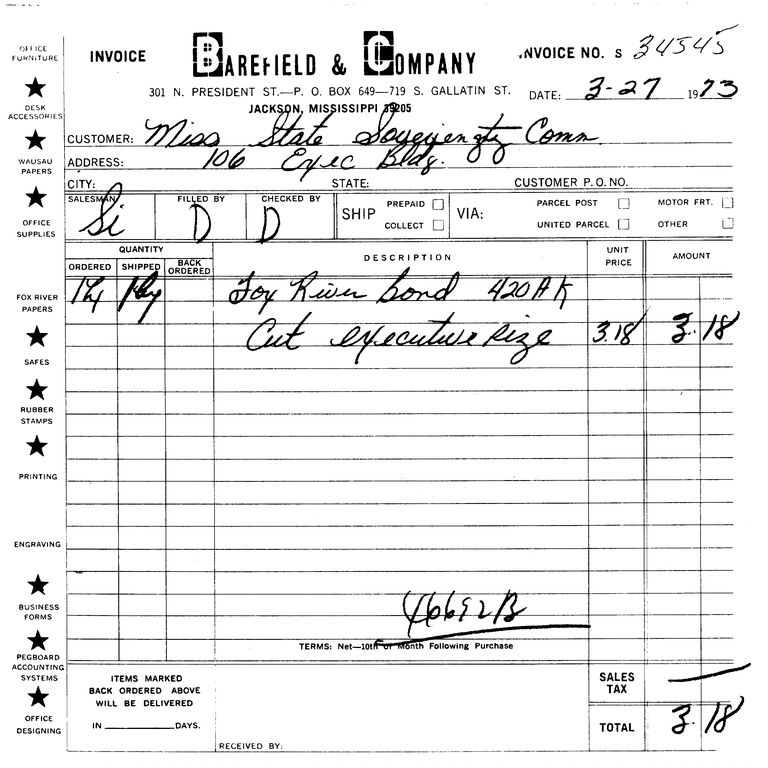 OFFICE FURNITURE
DESK ACCESSORIES
WAUSAU PAPERS
OFFICE SUPPLIES
FOX RIVER PAPERS
SAFES
RUBBER STAMPS
PRINTING
ENGRAVING
BUSINESS FORMS
PEGBOARD ACCOUNTING SYSTEMS
OFFICE DESIGNING
INVOICE BAREFIELD & COMPANY INVOICE NO. S 34545
301 N. PRESIDENT ST.—P. O. BOX 649—719 S. GALLATIN ST. DATE: 3-27 1973
JACKSON, MISSISSIPPI 39205
CUSTOMER: Miss State Soveriengty Comm
ADDRESS: 106 Exec Bldg.
CITY: STATE: CUSTOMER P. O. NO.
SALESMAN FILLED BY CHECKED BY SHIP PREPAID VIA: PARCEL POST MOTOR FRT.
Si D D COLLECT UNITED PARCEL OTHER
QUANTITY DESCRIPTION UNIT PRICE AMOUNT
ORDERED SHIPPED BACK ORDERED
Fox River bond 420AK
Cut executive size 3.18 3.18
46692B
TERMS: Net—10th of Month Following Purchase
ITEMS MARKED BACK ORDERED ABOVE WILL BE DELIVERED
IN DAYS.
RECEIVED BY:
SALES TAX —
TOTAL 3.18